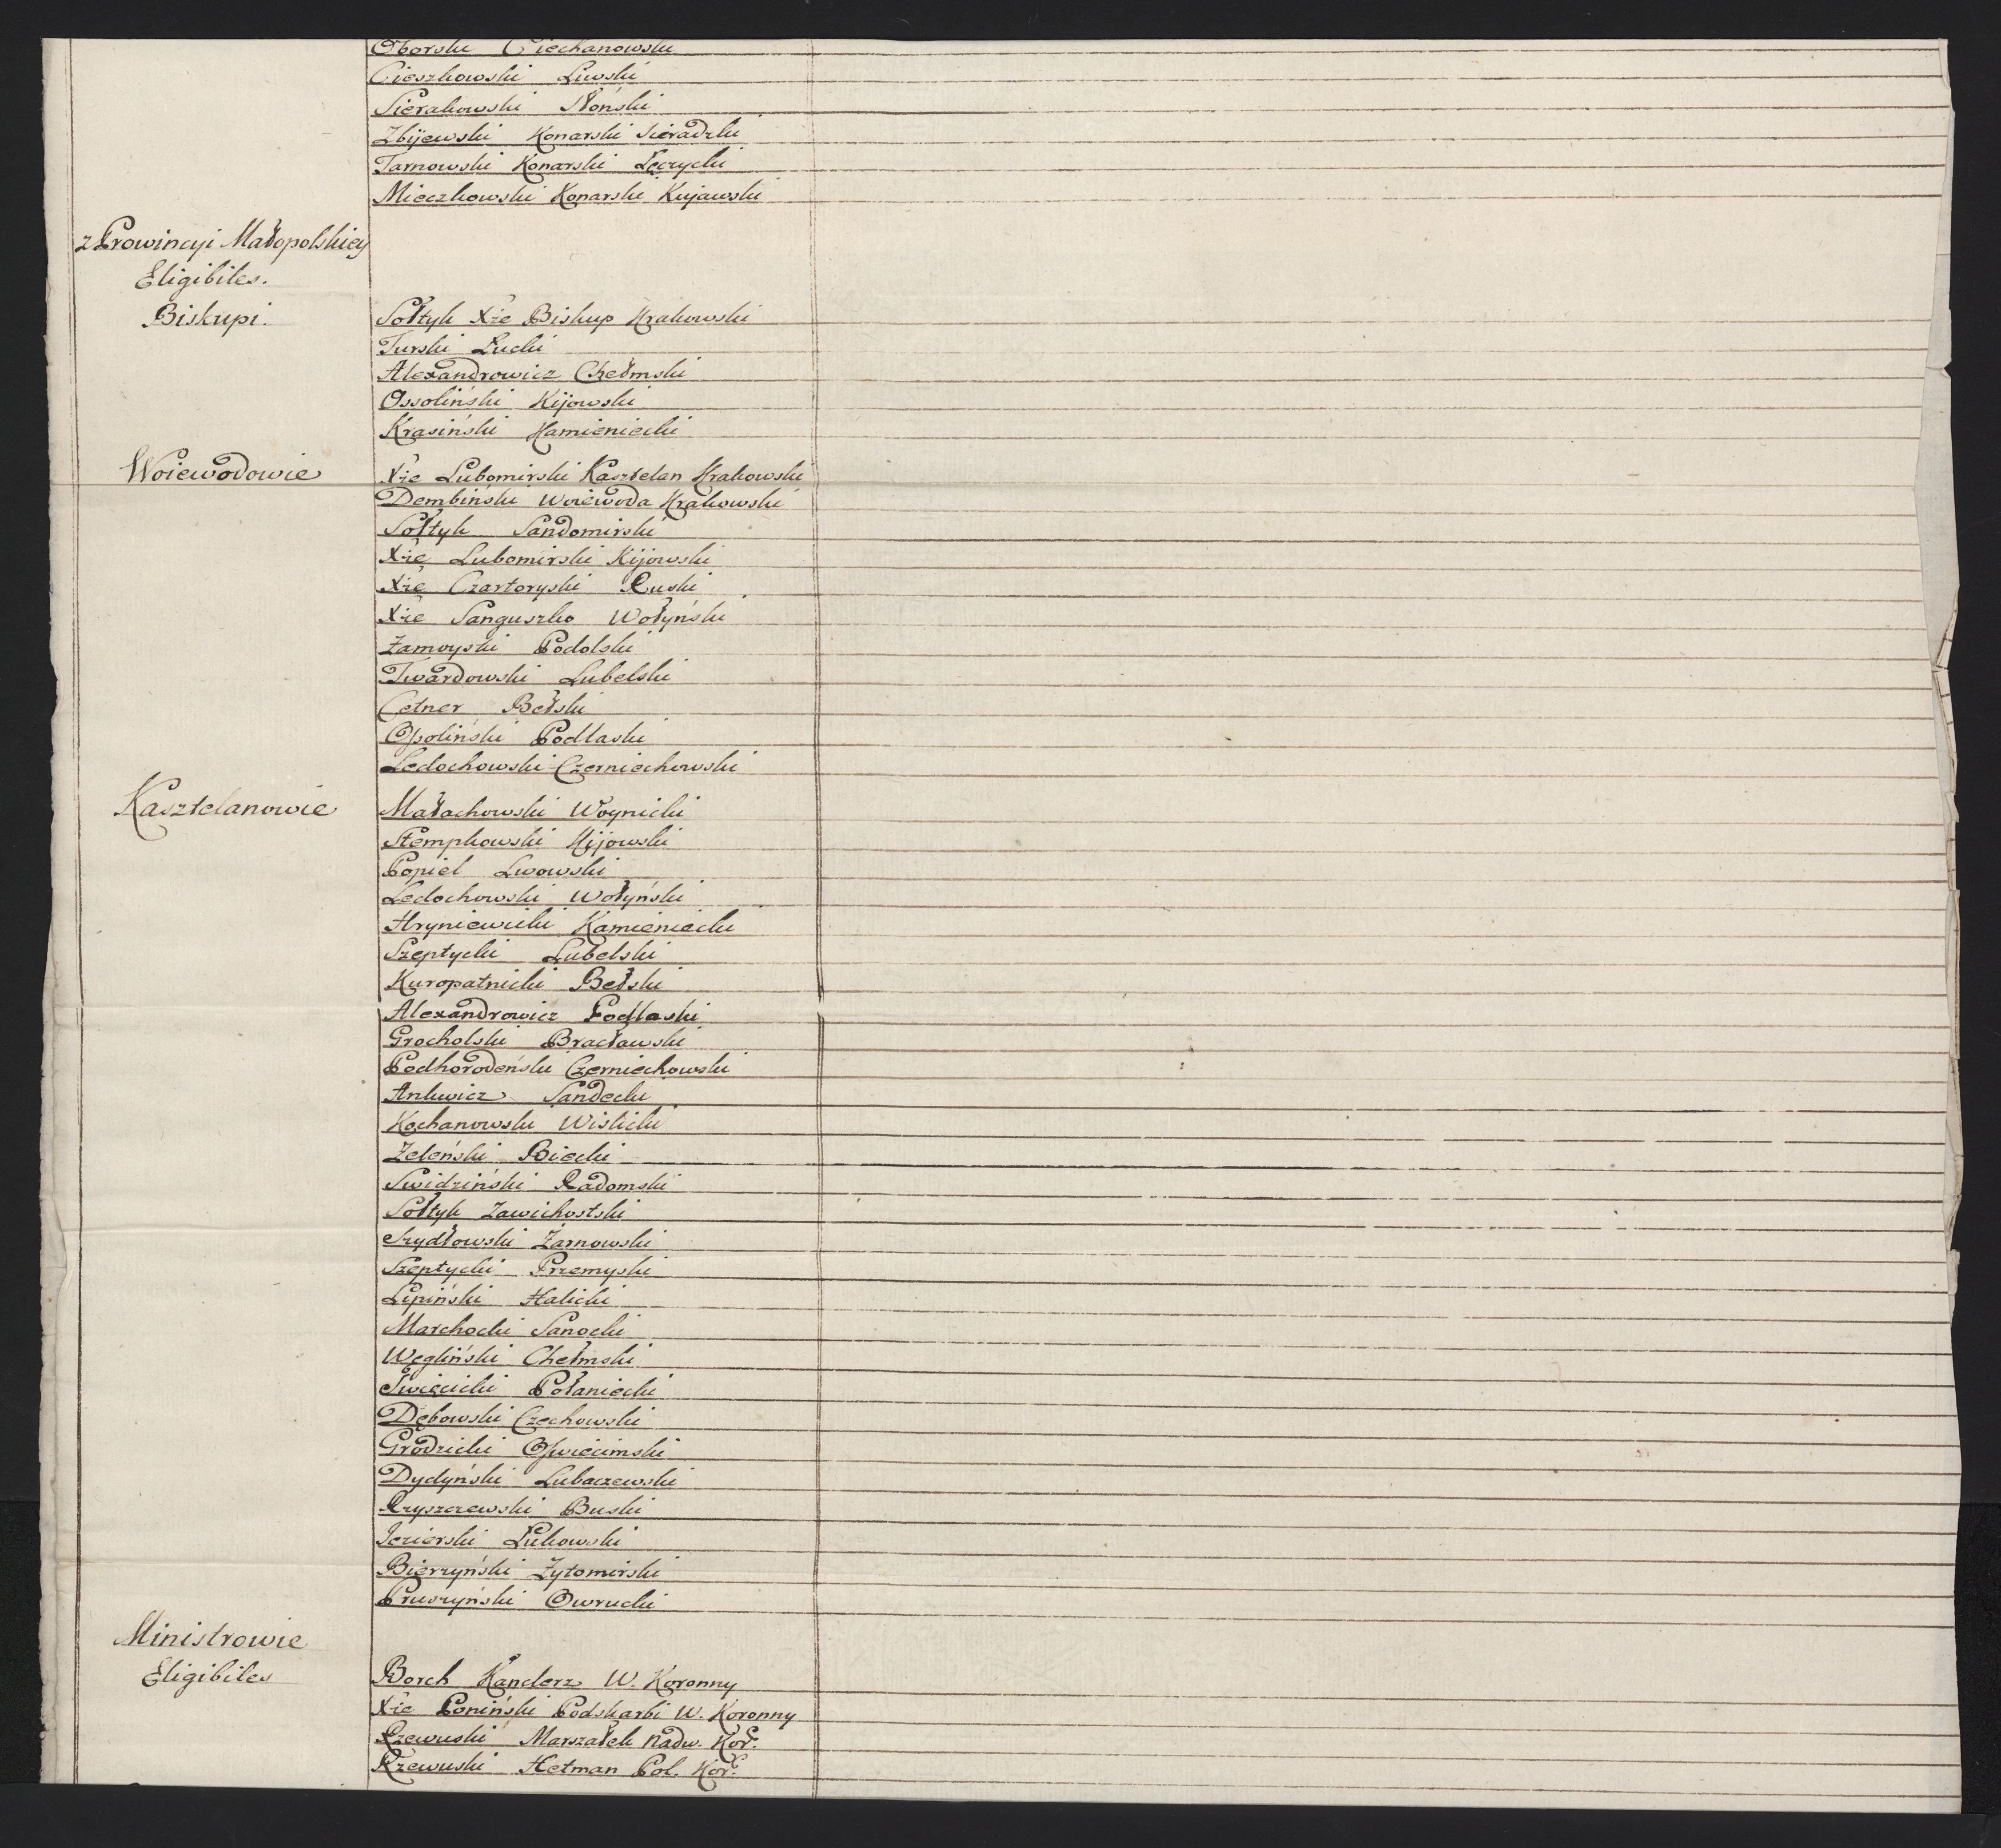 Oborski Ciechanowski
Cieszkowski Liwski
Sierakowski Słoński
Zbijewski Konarski Sieradzki
Tarnowski Konarski Łęczycki
Mieczkowski Konarski Kujawski
z Prowincyi Małopolskiey
Eligibiles.
Biskupi.
Sołtyk Xże Biskup Krakowski
Turski Łucki
Alexandrowicz Chełmski
Ossoliński Kijowski
Krasiński Kamieniecki
Woiewodowie
Xże Lubomirski Kasztelan Krakowski
Dembiński Woiewoda Krakowski
Sołtyk Sandomirski
Xże Lubomirski Kijowski
Xże Czartoryski Ruski
Xże Sanguszko Wołyński
Zamoyski Podolski
Twardowski Lubelski
Cetner Bełski
Opoliński Podlaski
Ledochowski Czerniechowski
Kasztelanowie
Małachowski Woynicki
Stempkowski Kijowski
Popiel Lwowski
Ledochowski Wołyński
Hryniewicki Kamieniecki
Szeptycki Lubelski
Kuropatnicki Bełski
Alexandrowicz Podlaski
Grocholski Bracławski
Podhorodeński Czerniechowski
Ankwicz Sandecki
Kochanowski Wislicki
Zeleński Biecki
Swidziński Radomski
Sołtyk Zawichostski
Szydłowski Żarnowski
Szeptycki Przemyski
Lipiński Halicki
Marchocki Sanocki
Węgliński Chełmski
Swięcicki Połaniecki
Dębowski Czechowski
Grodzicki Oswiecimski
Dydyński Lubaczewski
Ryszczewski Buski
Jezierski Łukowski
Bierzyński Żytomirski
Pruszyński Owrucki
Ministrowie
Eligibiles
Borch Kanclerz W. Koronny
Xże Poniński Podskarbi W. Koronny
Rzewuski Marszałek Nadw. Kor:
Rzewuski Hetman Pol. Kor: